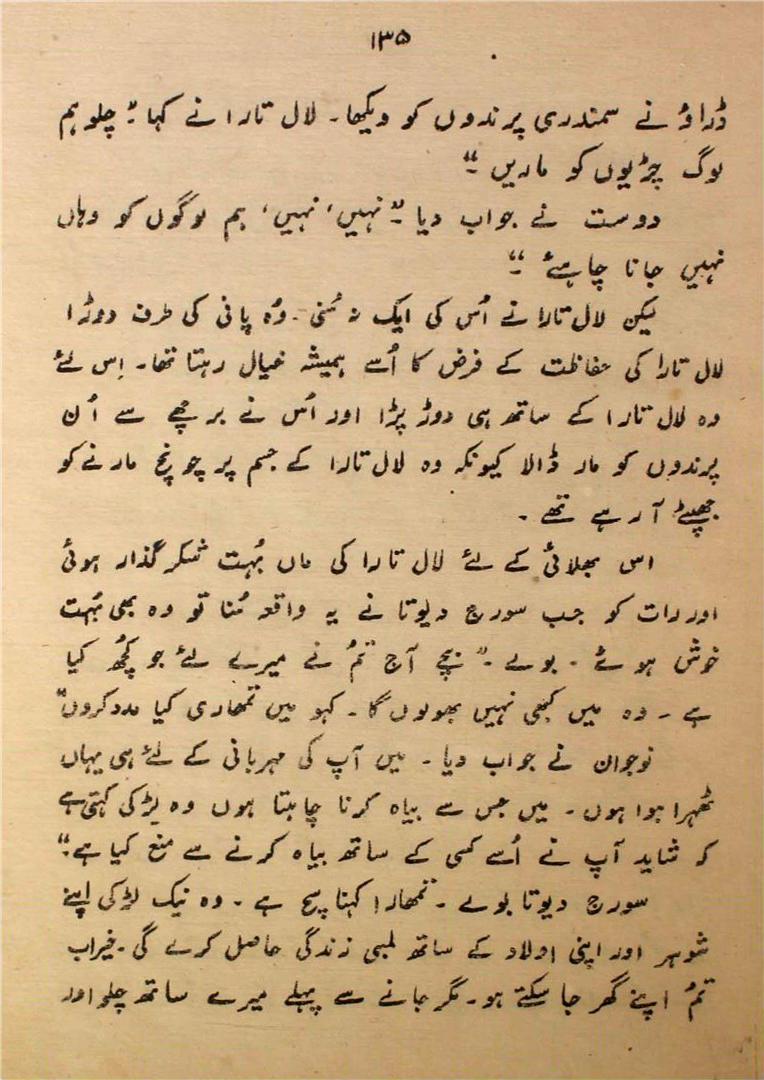 ۱۳۵
ڈراؤ نے سمندری پرندوں کو دیکھا۔ لال تارا نے کہا۔" چلو ہم
لوگ چڑیوں کو ماریں۔"
دوست نے جواب دیا۔" نہیں، نہیں، ہم لوگوں کو وہاں
نہیں جانا چاہئے۔"
لیکن لال تارا نے اُس کی ایک نہ سُنی۔ وُہ پانی کی طرف دوڑا
لال تارا کی حفاظت کے فرض کا اُسے ہمیشہ خیال رہتا تھا۔ اِس لئے
وہ لال تارا کے ساتھ ہی دوڑ پڑا اور اُس نے برچھے سے اُن
پرندوں کو مار ڈالا کیونکہ وہ لال تارا کے جسم پر چونچ مارنے کو
جھپٹے آ رہے تھے۔
اس بھلائی کے لئے لال تارا کی ماں بُہت شکر گذار ہوئی
اور رات کو جب سورج دیوتا نے یہ واقعہ سُنا تو وہ بھی بُہت
خوش ہوئے۔ بولے۔" بچے آج تمُ نے میرے لئے جو کُچھ کیا
ہے۔ وہ میں کبھی نہیں بھولوں گا۔ کہو میں تمھاری کیا مدد کروں"
نوجوان نے جواب دیا۔ میں آپ کی مہربانی کے لئے ہی یہاں
ٹھہرا ہوا ہوں۔ میں جس سے بیاہ کرنا چاہتا ہوں وہ لڑکی کہتی ہے
کہ شاید آپ نے اُسے کسی کے ساتھ بیاہ کرنے سے منع کیا ہے۔"
سورج دیوتا بولے۔ تمھارا کہنا سچ ہے۔ وہ نیک لڑکی اپنے
شوہر اور اپنی اولاد کے ساتھ لمبی زندگی حاصل کرے گی۔ خیر اب
تمُ اپنے گھر جا سکتے ہو۔ مگر جانے سے پہلے میرے ساتھ چلو اور